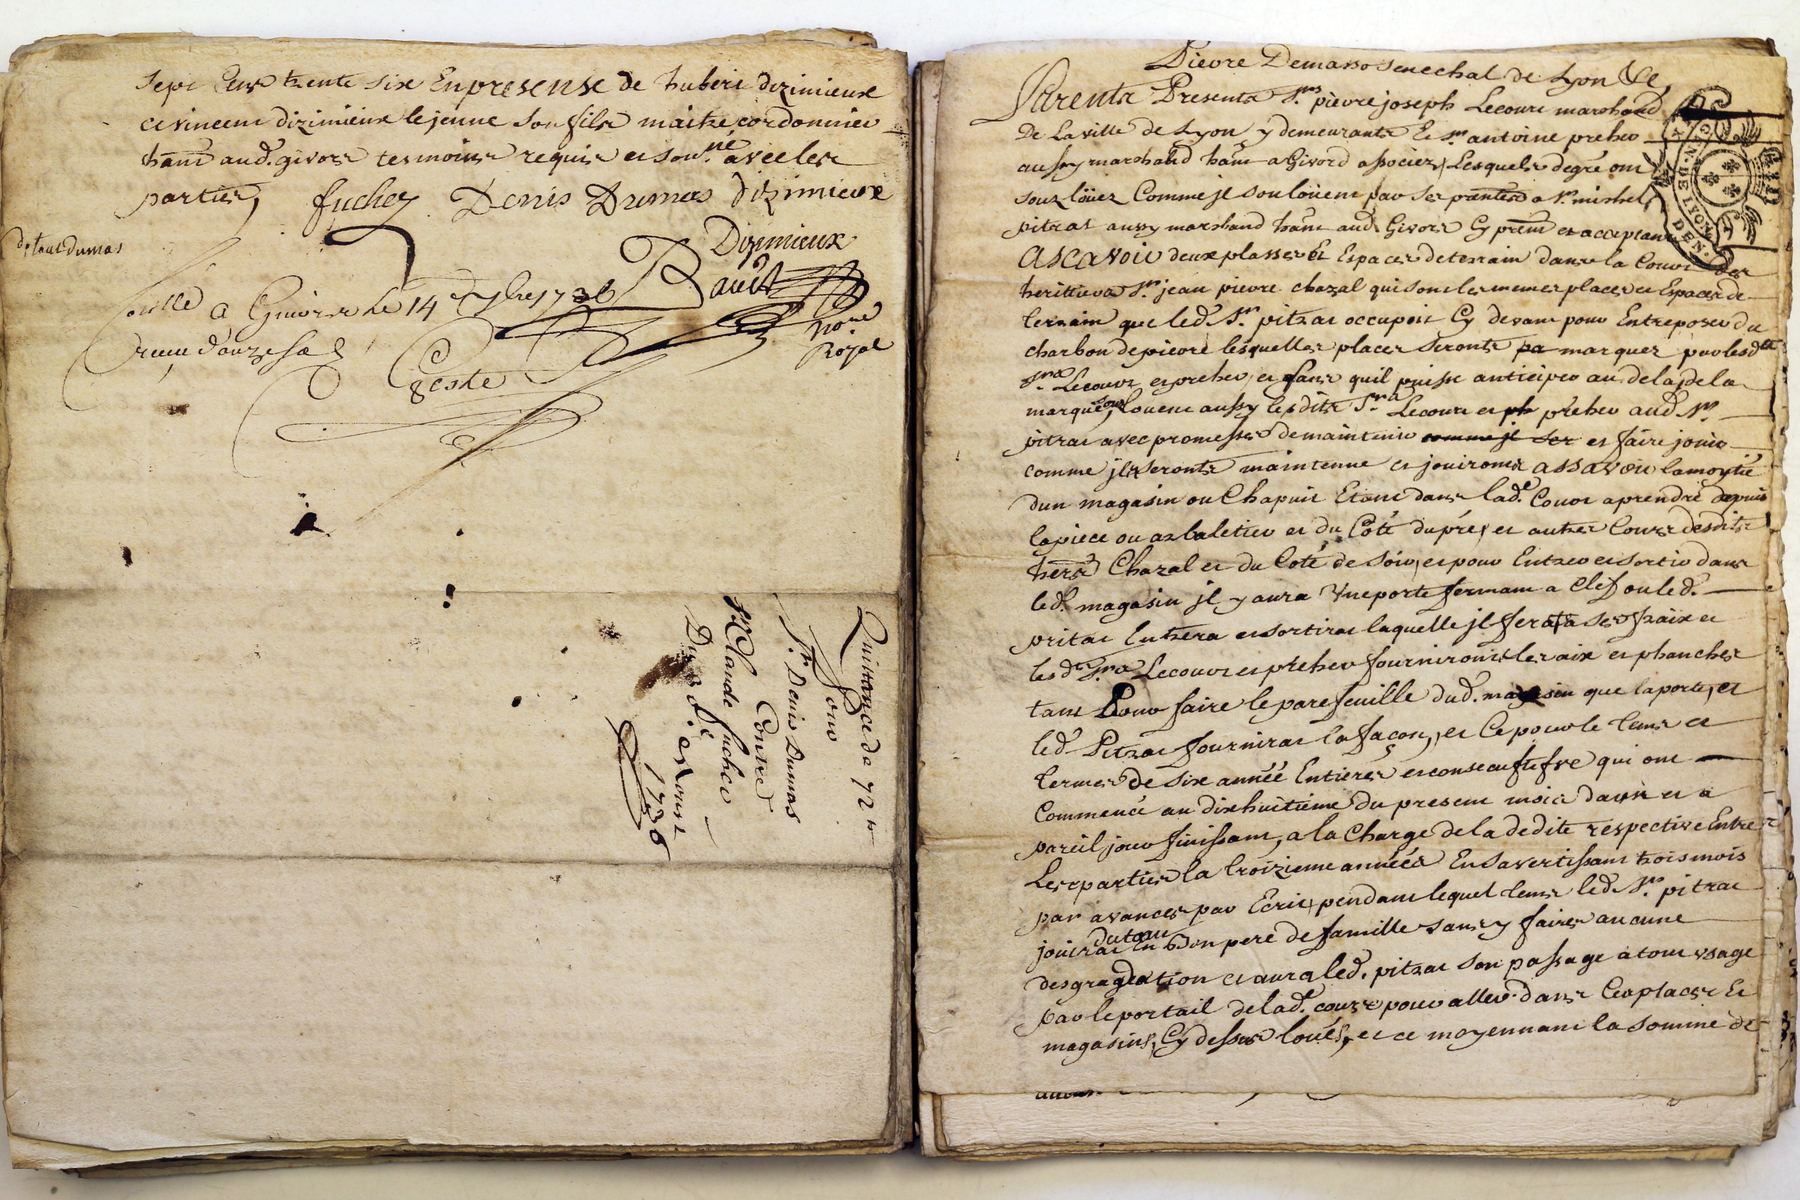 sept Cens trente six En presense de hubert dizimieux
et vincent dizimieux le jeune son fils maitre cordonnier
hant aud. givors tesmoins requis et sou.né avec les
parties,
fucher Denis Dumas dizimieux
Dizimieux
d. taut dumas
Baudt
no.re
Royal
Conlle a Givors le 14 7bre 1736
Receu douze sols
Geste
Quittance de 72 tt
Pour
Sr. Denis Dumas
Contre
Sr. Claude fucher
Du 3 d.e Aoust
1736
Pierre Demasso senechal de Lyon &c,
Parents Presents Srs pierre joseph Lecourt marchand
De La ville de Lyon y demeurants Et Sr. antoine preher
aussy marchand hant a Givord associez, Lesquels degré ont
souz löüez Comme jl soulouent par Ses pnantes a Sr. michel
pitrat aussy marchand hant aud. Givors Cy prent et acceptant
Ascavoir deux plasses Et Espaces de terrain dans la Cour des
heritiers Sr. jean pierre chazal qui sont les memes places et Espaces de
terrain que led. Sr. pitrat occupoit Cy devant pour Entreposer du
charbon de pierre lesquelles places seronts pa marquez par lesdtt
Srs Lecourt et preher, et sans quil puisse anticiper au dela de la
marque, sous louent aussy lesdits Srs Lecourt et ph preher aud. Sr.
pitrat avec promesses de maintenir comme jl ser et faire jouir
comme jls seronts maintenue et jouironts assavoir la moytié
dun magasin ou Chapuit Etant dans lad.e Cour aprendre depuis
la piece ou arbaletier et du Côté du pré, et autres Cours desdits
hers Chazal et du Coté de soir, et pour Entrer et sortir dans
led. magasin jl y aura Vne porte fermant a Clef ou led.
pritat Entrera et sortirat laquelle jl fera a ses fraix et
lesd. Srs Lecourt et preher fourniront les aix et planches
tant Pour faire le parefeuille dud. magasin que la porte, et
led. Pitrat fournirat la façon, et Ce pour le tems et
termes de six année Entieres et consecutifve qui ont
Commencé au dixhuitieme du present mois daust et a
pareil jour finissant, a la Charge de la dedite respective Entre
Les parties la troizieme années En savertissant trois mois
par avances par Ecrit, pendant lequel tems led. Sr. pitrat
jouirat du tout En bon pere de famille sans y faires aucune
desgragdation et aura led. pitrat son passage a tout usage
par le portail de lad. cours, pour aller dans les places Et
magasins, Cy dessus loués, et ce moyennant la somme de